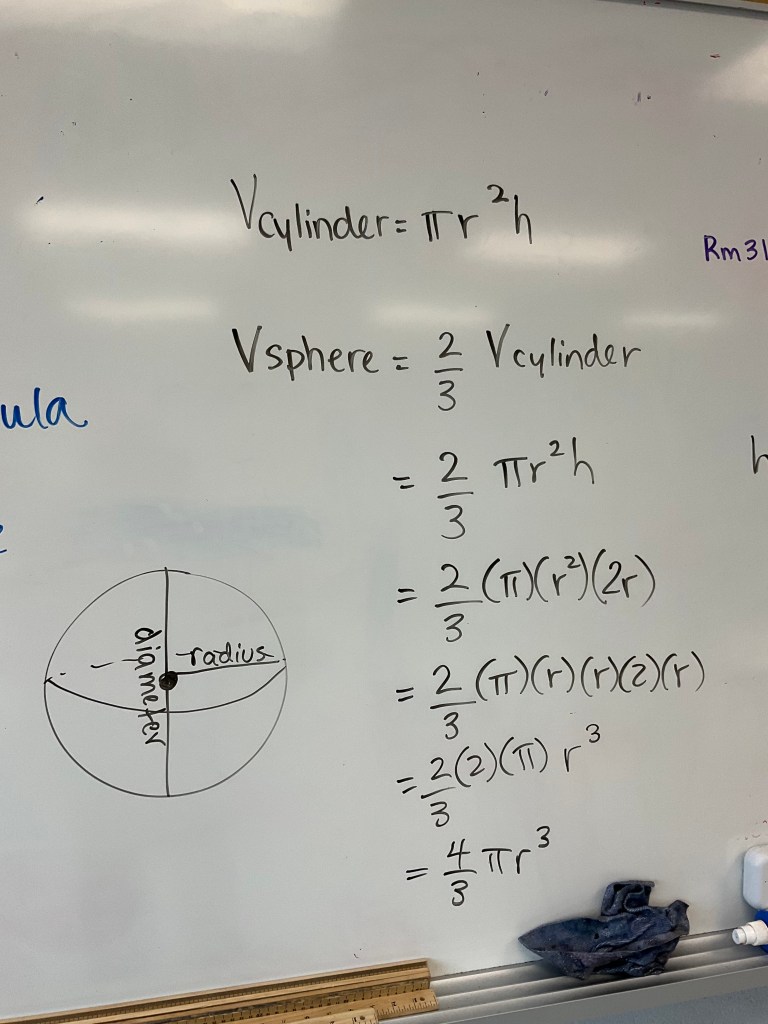 Vcylinder = πr²h
Rm31
Vsphere = 2/3 Vcylinder
ula
= 2/3 πr²h
h
= 2/3 (π)(r²)(2r)
diameter
radius
= 2/3 (π)(r)(r)(2)(r)
= 2/3 (2)(π) r³
= 4/3 πr³